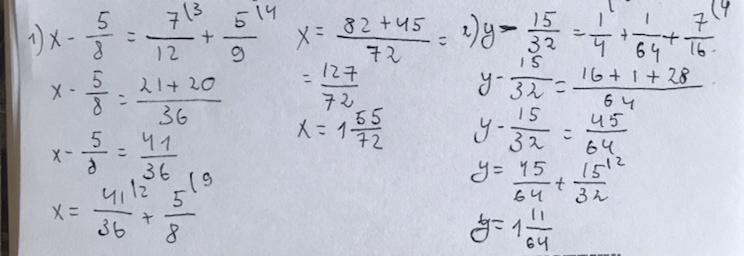 1) x - 5/8 = 7/12 (3 + 5/9 (4
x - 5/8 = 21+20/36
x - 5/8 = 41/36
x = 41/36 (2 + 5/8 (9
x = 82+45/72 =
= 127/72
x = 1 55/72
2) y - 15/32 = 1/4 + 1/64 + 7/16 (4
y - 15/32 = 16+1+28/64
y - 15/32 = 45/64
y = 45/64 + 15/32 (2
y = 1 11/64